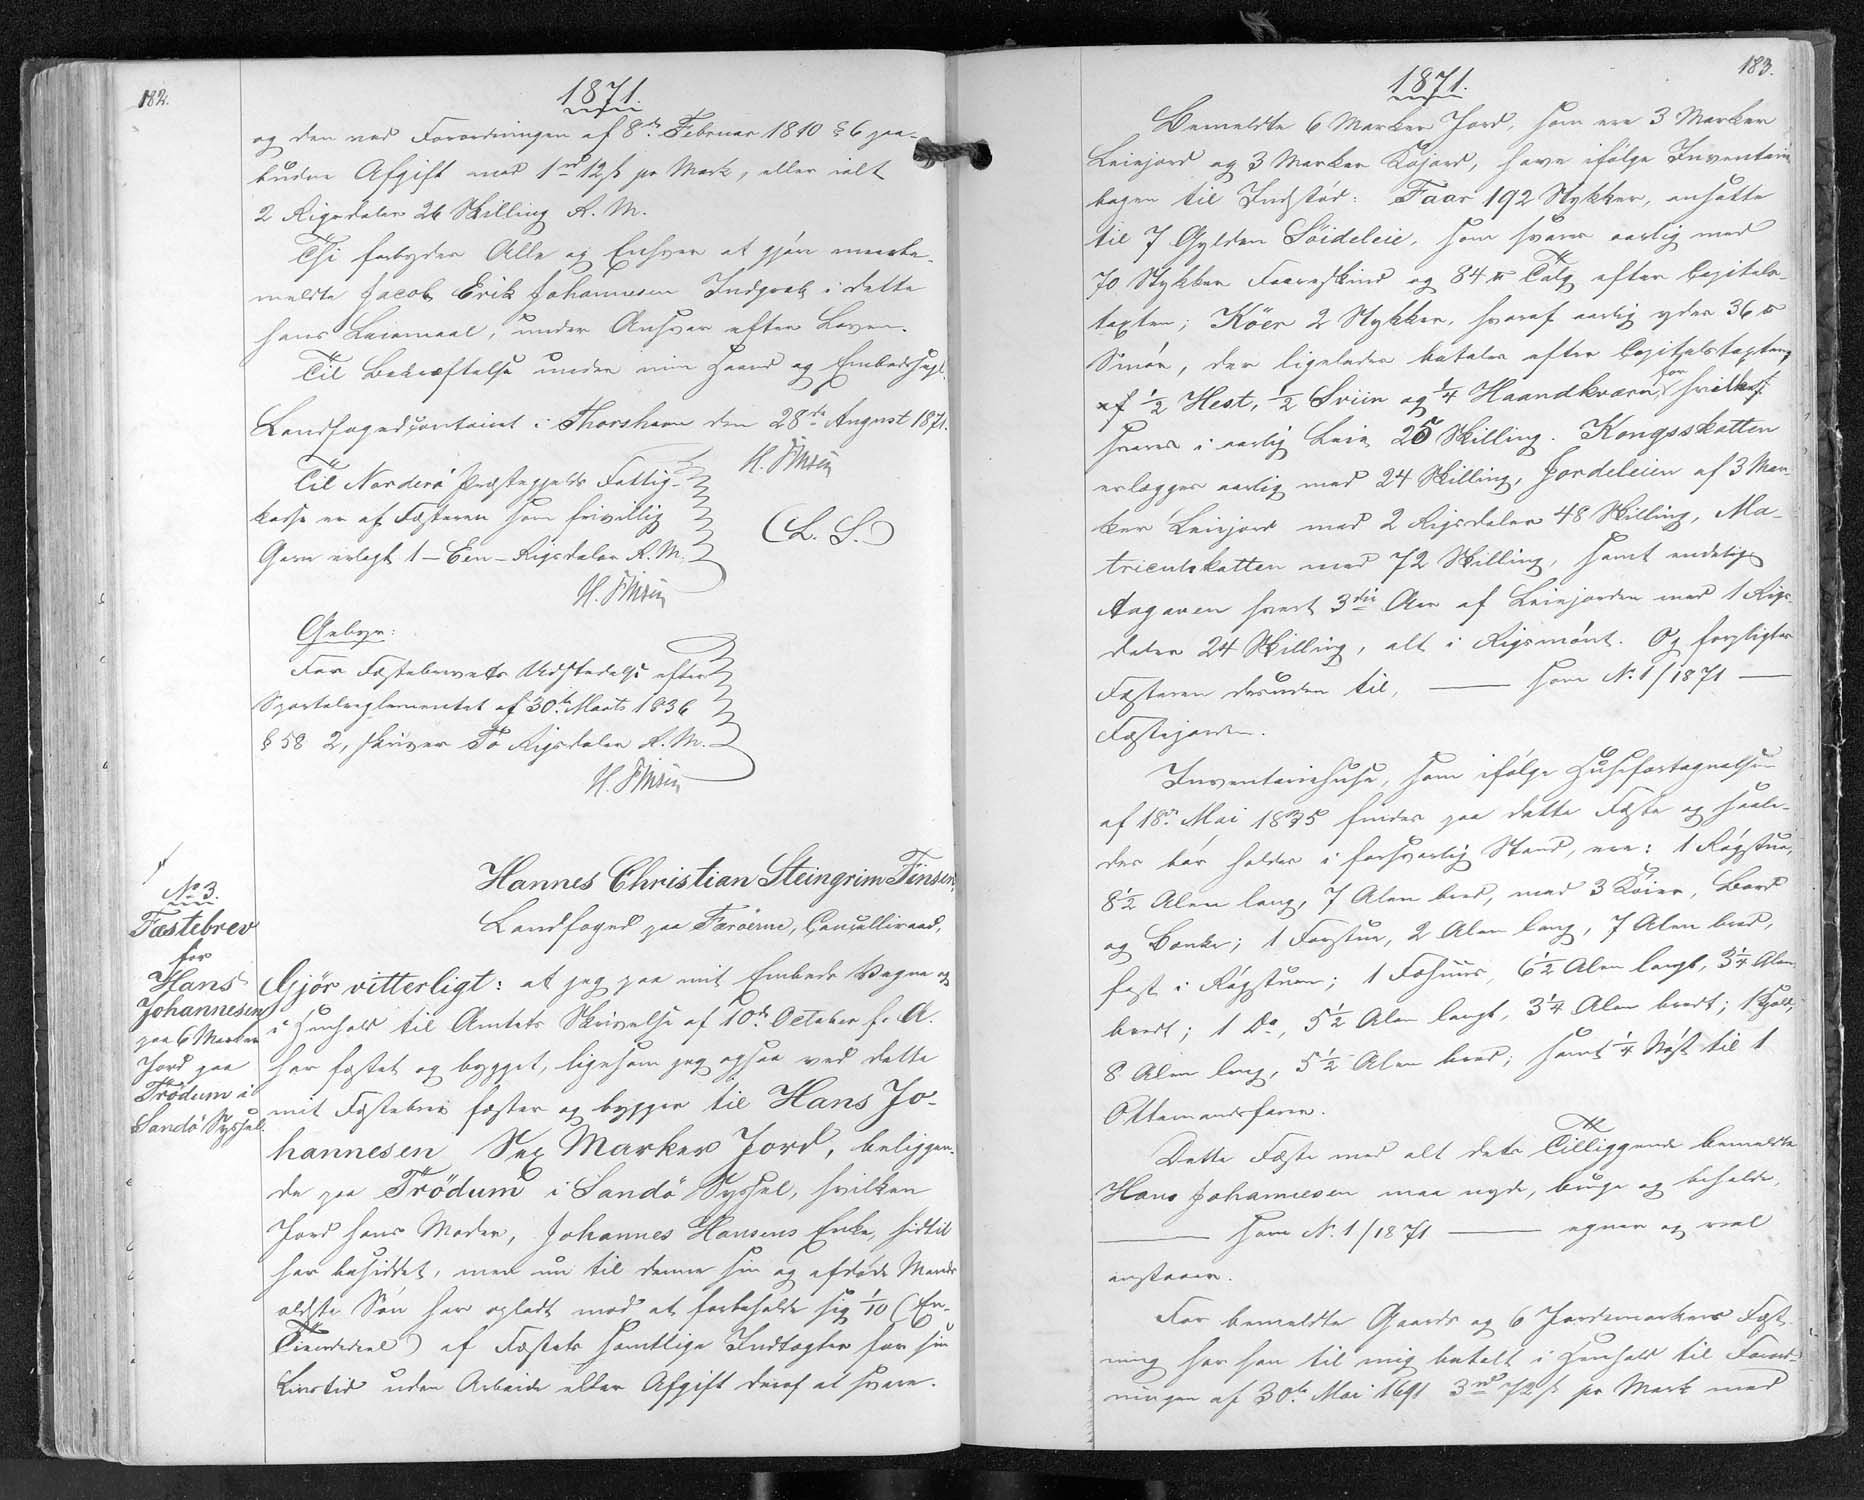 182.
1871.
og den ved Forordningen af 8de Februar 1810 § 6 paa-
budne Afgift med 1 rd 12 ß pr Mark, eller ialt
2 Rigsdaler 26 Skilling R. M.
Thi forbydes Alle og Enhver at gjöre meerbe-
meldte Jacob Erik Johannesen Indgreb i dette
hans Leiemaal, under Ansvar efter Loven.
Til Bekræftelse under min Haand og Embedssegl.
Landfogedcontoiret i Thorshavn den 28de August 1871.
H. Finsen
(L. S.)
Til Norderö Præstegjelds Fattig-
kasse er af Fæsteren som frivillig
Gave erlagt 1 – Een – Rigsdaler R. M.
H. Finsen
Gebyr:
For Fæstebrevets Udstedelse efter
Sportelreglementet af 30te Marts 1836
§ 58 2, skriver To Rigsdaler R. M.
H. Finsen
No 3.
Fæstebrev
for
Hans
Johannesen
paa 6 Marker
Jord paa
Trödum i
Sandö Syssel.
Hannes Christian Steingrim Finsen,
Landfoged paa Færöerne, Cancelliraad,
Gjör vitterligt: at jeg paa mit Embeds Vegne og
i Henhold til Amtets Skrivelse af 10de October f. A.
har fæstet og bygget, ligesom jeg ogsaa ved dette
mit Fæstebrev fæster og bygger til Hans Jo-
hannesen Sex Marker Jord, beliggen-
de paa Trödum i Sandö Syssel, hvilken
Jord hans Moder, Johannes Hansens Enke, hidtil
har besiddet, men nu til denne sin og afdöde Mands
ældste Sön har opladt mod at forbeholde sig 1/10 (En-
Tiendedeel) af Fæstets samtlige Indtægter for sin
Livstid uden Arbeide eller Afgift deraf at svare.
183.
1871.
Bemeldte 6 Marker Jord, som ere 3 Marker
Leiejord og 3 Marker Kojord, have ifölge Inventarie
bogen til Indstöd: Faar 192 Stykker, ansatte
til 7 Gylden Söideleie, som svares aarlig med
70 Stykker Faareskind og 84 ℔ Talg efter Capitels-
taxten; Köer 2 Stykker, hvoraf aarlig ydes 36 ℔
Smör, der ligeledes betales efter Capitelstaxten;
af 1/2 Hest, 1/2 Sviin og 1/4 Haandkværn, for hvilket
svares i aarlig Leie 25 Skilling. Kongsskatten
erlægges aarlig med 24 Skilling, Jordeleien af 3 Mar-
ker Leiejord med 2 Rigsdaler 48 Skilling, Ma-
triculskatten med 72 Skilling, samt endelig
Angaven hvert 3die Aar af Leiejorden med 1 Rigs-
daler 24 Skilling, alt i Rigsmönt. Og forpligtes
Fæsteren desuden til, —— som No 1/1871 ——
Fæstejorden.
Inventariehuse, som ifölge Huusfortegnelsen
af 18de Mai 1835 findes paa dette Fæste og saale-
des bör holdes i forsvarlig Stand, ere: 1 Rögstue,
8 1/2 Alen lang, 7 Alen bred, med 3 Köier, Bord
og Bænke; 1 Forstue, 2 Alen lang, 7 Alen bred,
fast i Rögstuen; 1 Fæhuus, 6 1/2 Alen langt, 3 1/4 Alen
bredt; 1 Do, 5 1/2 Alen langt, 3 1/4 Alen bredt; 1 Hjald,
8 Alen lang, 5 1/2 Alen bred; samt 1/4 Nöst til 1
Ottemandsfarer.
Dette Fæste med alt dets Tilliggende bemeldte
Hans Johannesen maa nyde, bruge og beholde,
—— som No. 1/1871 —— egner og vel
anstaaer.
For bemeldte Gaards og 6 Jordemarkers Fæst-
ning har han til mig betalt i Henhold til Forord-
ningen af 30te Mai 1691 3 rd 72 ß pr Mark med